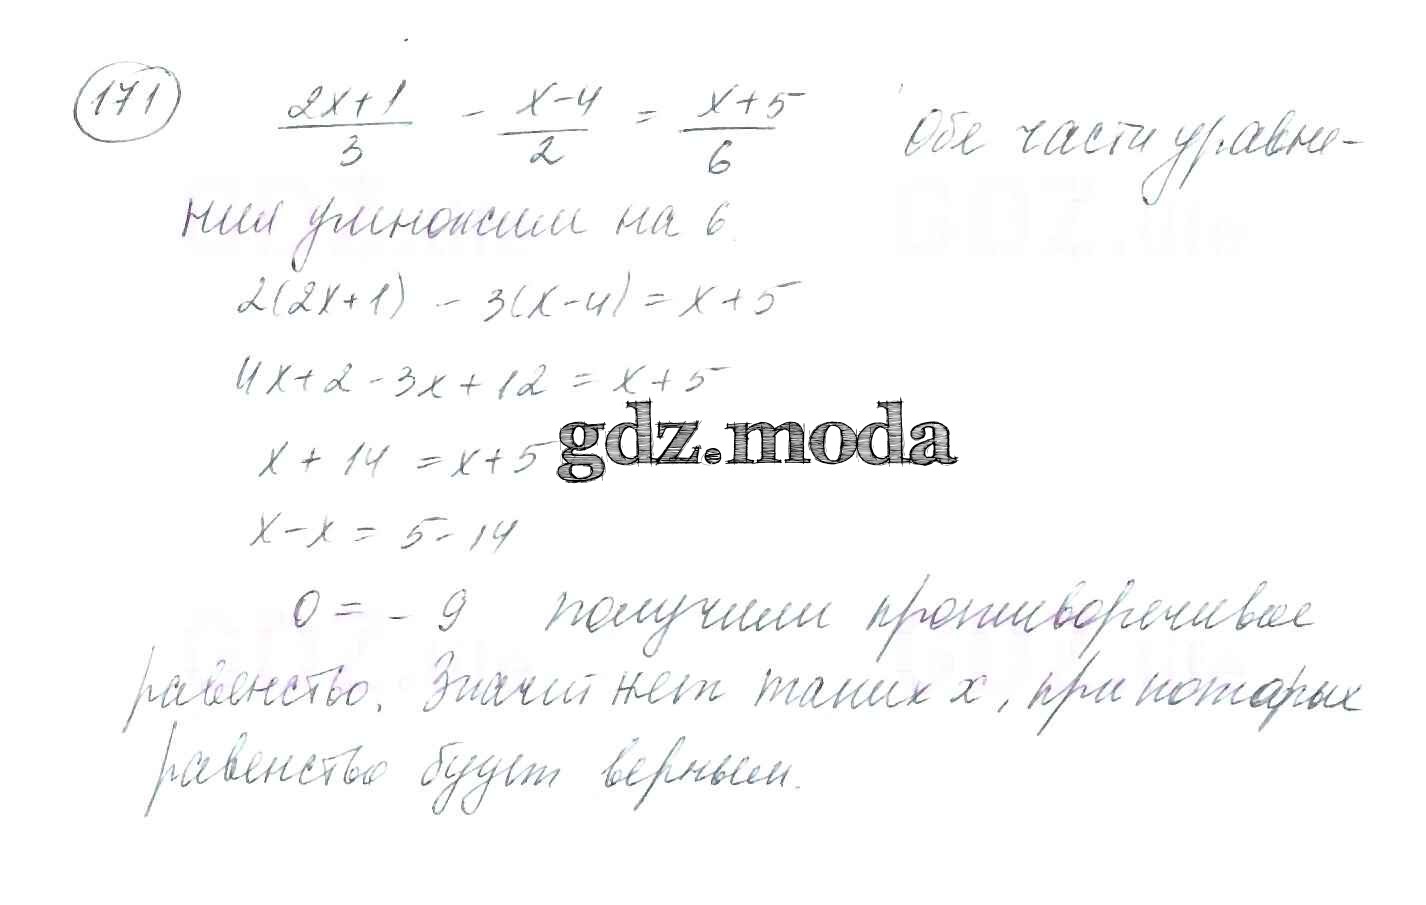 171 (2x+1)/3 - (x-4)/2 = (x+5)/6 Обе части уравне-
ния умножим на 6.
2(2x+1) - 3(x-4) = x+5
4x+2-3x+12 = x+5
x + 14 = x+5
gdz.moda
x-x = 5-14
0 = - 9 получили противоречивое
равенство. Значит нет таких x, при которых
равенство будет верным.